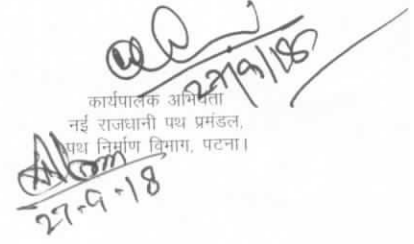 27/9/18
कार्यपालक अभियंता
नई राजधानी पथ प्रमंडल,
पथ निर्माण विभाग, पटना।
27-9-18